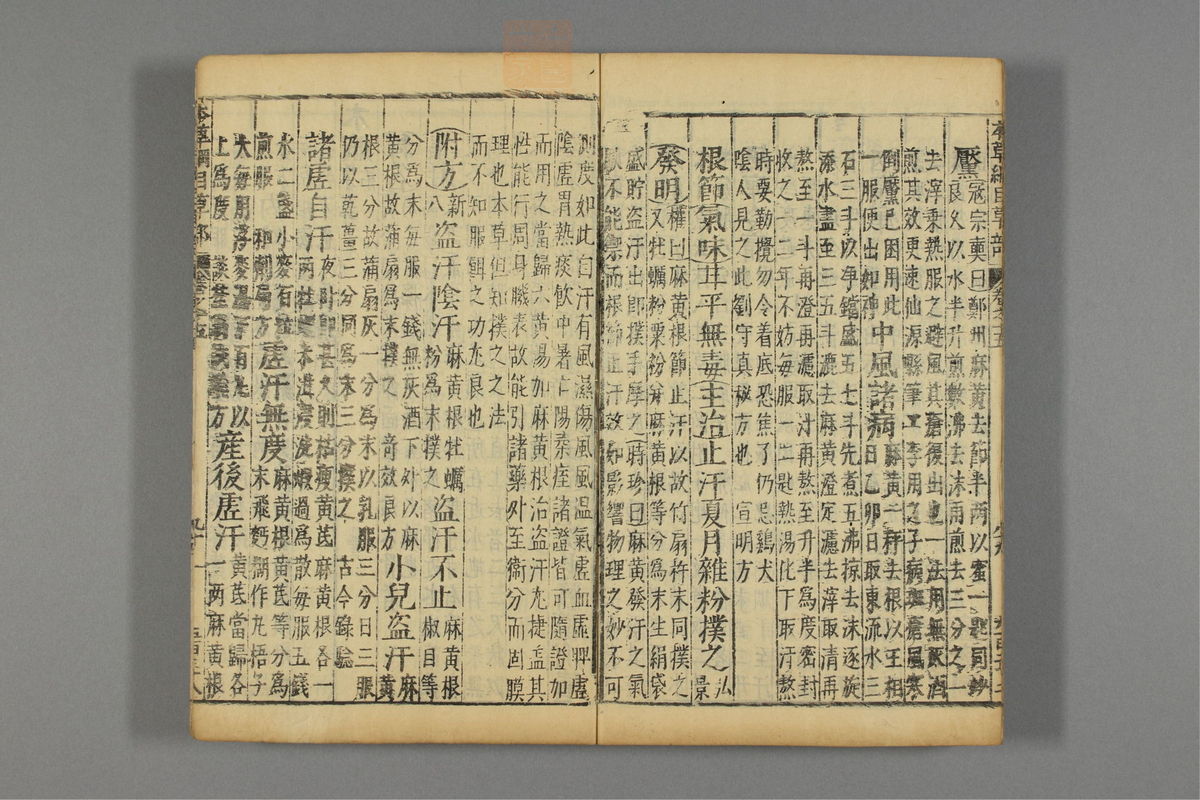 黶寇宗奭曰鄭州麻黃去節半兩以蜜一匙同炒
良久以水半升煎數沸去沫再煎去三分之一
去滓乘熱服之避風其瘡復出也一法用無灰酒
煎其效更速仙源縣筆工李用之子病斑瘡風寒
倒黶已困用此
一服便出如神中風諸病麻黃一秤去根以王相
日乙卯日取東流水三
石三斗以净鐺盛五七斗先煮五沸掠去沫逐旋
添水盡至三五斗漉去麻黃澄定濾去滓取清再
熬至一斗再澄再濾取汁再熬至升半為度密封
收之一二年不妨每服一二匙熱湯化下取汗熬
時要勤攪勿令着底恐焦了仍忌雞犬
陰人見之此劉守真秘方也 宣明方
根節氣味甘平無毒主治止汗夏月雜粉撲之弘
景
發明權曰麻黃根節止汗以故竹扇杵末同撲之
又牡蠣粉粟粉并麻黃根等分為末生絹袋
盛貯盗汗出即撲手摩之時珍曰麻黃發汗之氣
駃不能禦而根節止汗效如影響物理之妙不可
測度如此自汗有風濕傷風風温氣虚血虚脾虚
陰虚胃熱痰飲中暑亡陽柔痓諸證皆可隨證加
而用之當歸六黃湯加麻黃根治盗汗尤捷盖其
性能行周身肌表故能引諸藥外至衞分而固腠
理也本草但知撲之之法
而不知服餌之功尤良也
附方新
八盗汗陰汗麻黃根牡蠣
粉為末撲之盗汗不止麻黃根
椒目等
分為末每服一錢無灰酒下外以麻
黃根故蒲扇為末撲之 奇效良方小兒盗汗麻
黃
根三分故蒲扇灰一分為末以乳服三分日三服
仍以乾薑三分同為末三分撲之 古今錄驗
諸虚自汗夜卧即甚久則枯瘦黃芪麻黃根各一
兩牡蠣米泔浸洗煅過為散每服五錢
水二盞小麥百粒
煎服 和劑局方虚汗無度麻黃根黃芪等分為
末飛麪糊作丸梧子
大每用浮麥湯下百丸以
止為度 談埜翁試驗方産後虚汗黃芪當歸各
一兩麻黃根